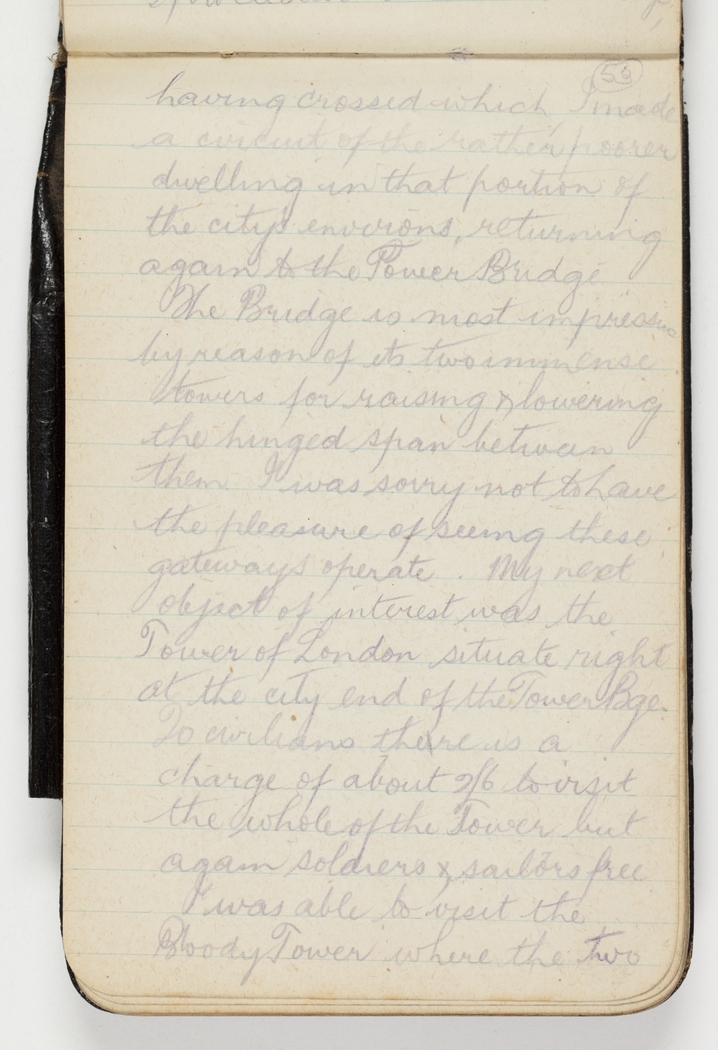 59
having crossed which I made
a circuit of the rather poorer
dwelling in that portion of
the city's environs, returning
again to the Tower Bridge.
The Bridge is most impressive
by reason of its two immense
towers for raising & lowering
the hinged span between
them. I was sorry not to have
the pleasure of seeing these
gateways operate. My next
object of interest was the
Tower of London situate right
at the city end of the Tower Bge.
To civilians there is a
charge of about 2/6 to visit
the whole of the Tower but
again soldiers & sailors free
I was able to visit the
Bloody Tower where the two